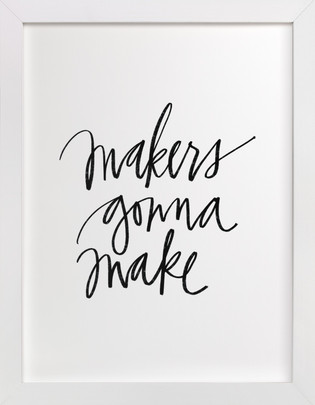 makers
gonna
make